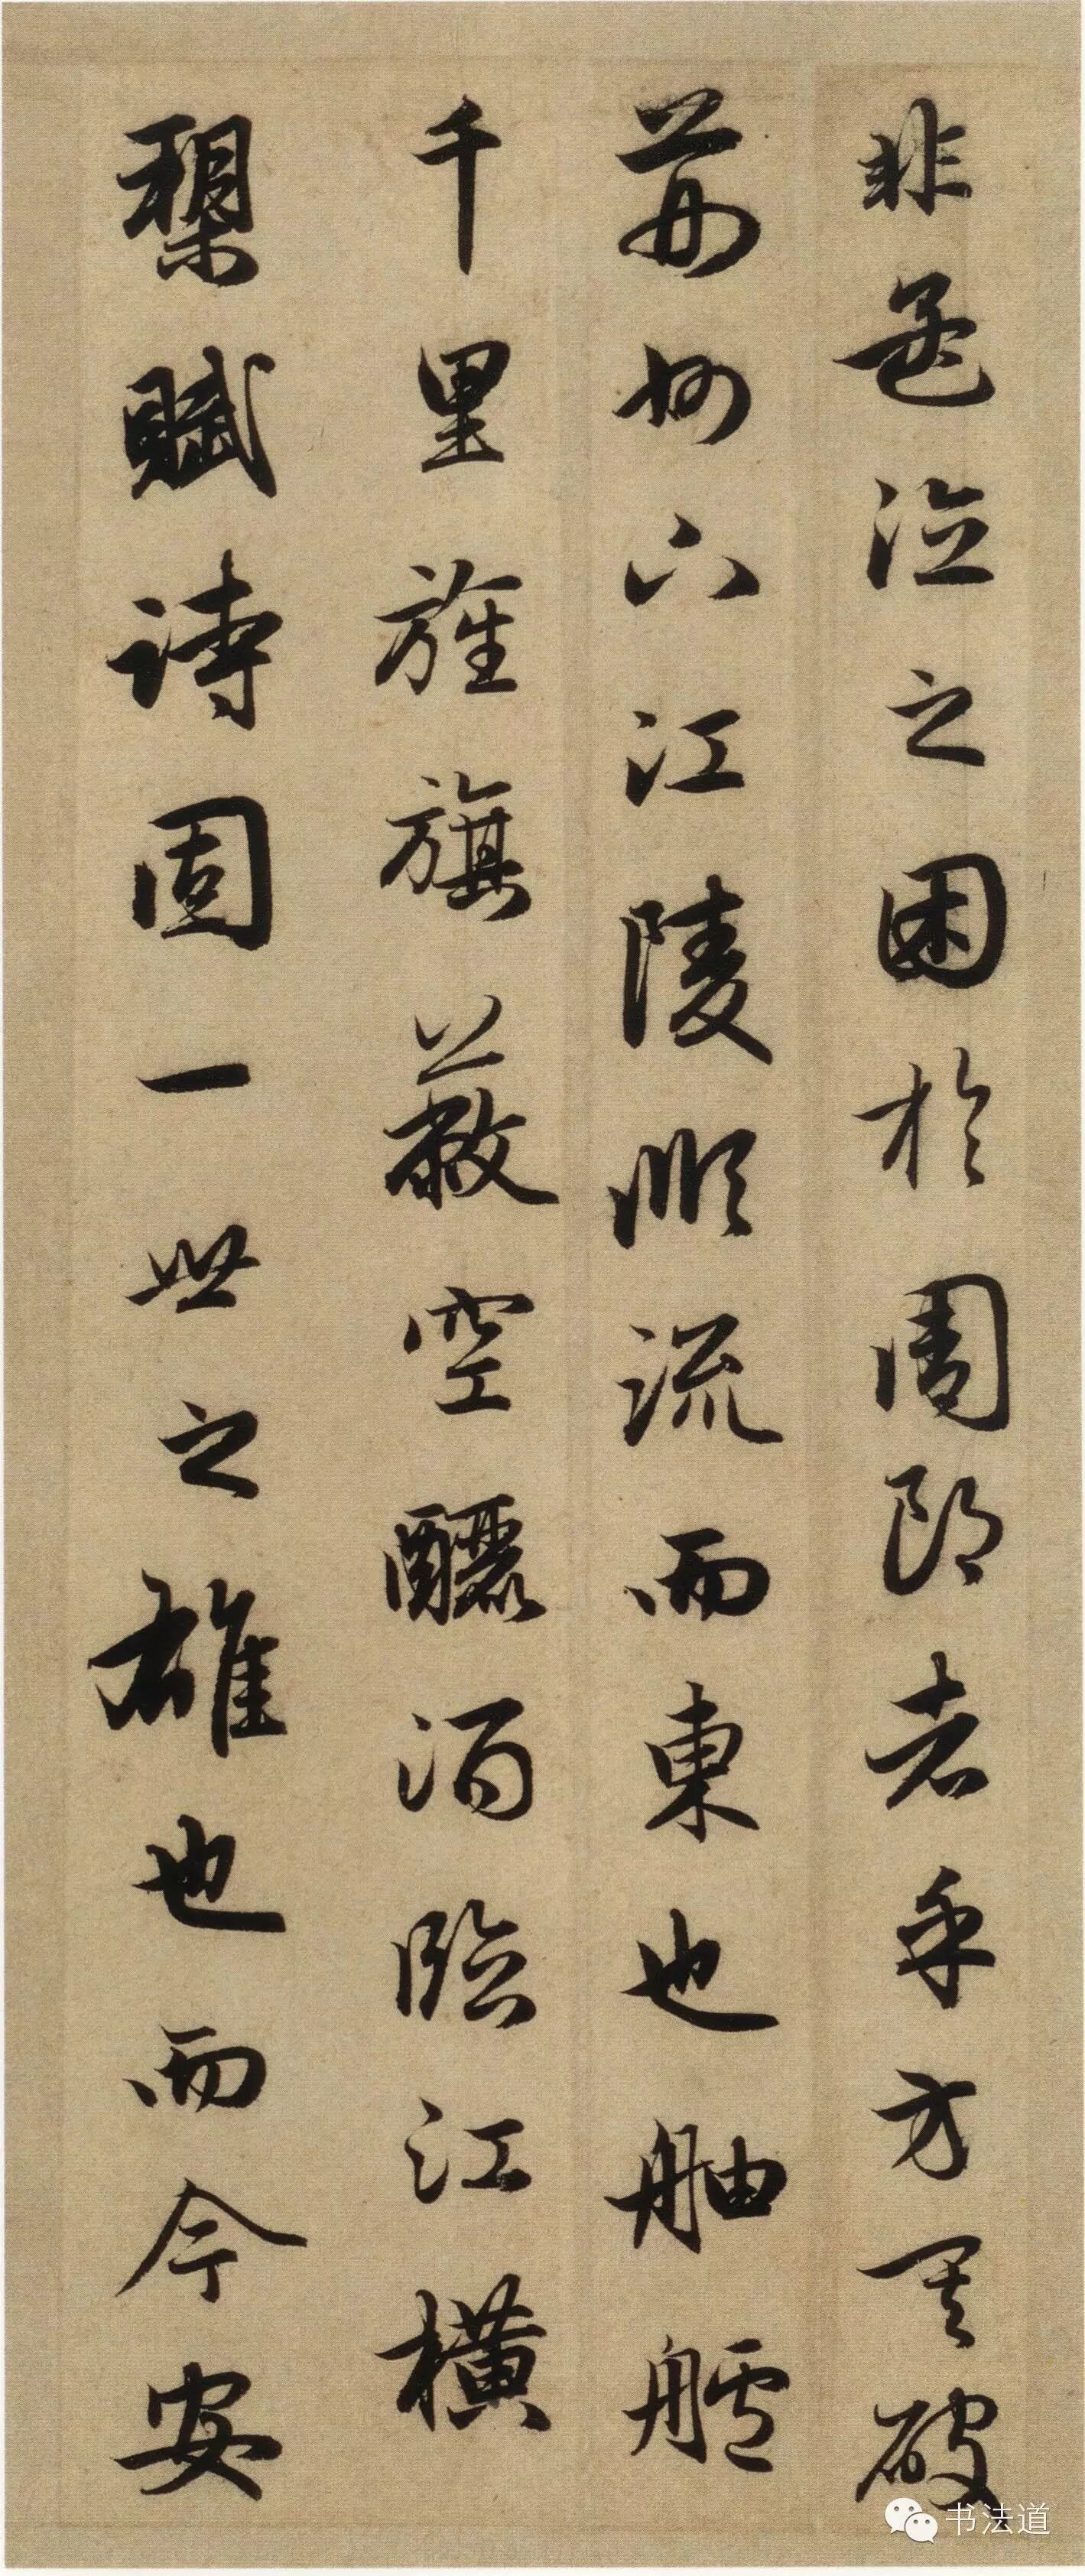 非孟德之困於周郎者乎方其破
荊州下江陵順流而東也舳艫
千里旌旗蔽空釃酒臨江橫
槊賦詩固一世之雄也而今安
书法道